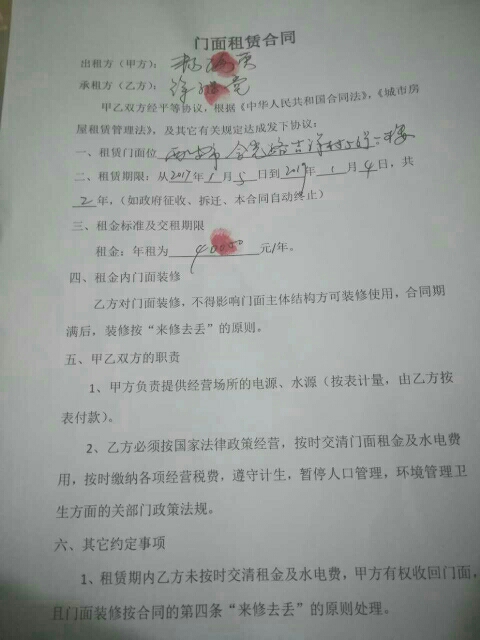 门面租赁合同
出租方（甲方）：
承租方（乙方）：
甲乙双方经平等协议，根据《中华人民共和国合同法》，《城市房
屋租赁管理法》、及其它有关规定达成发下协议：
一、租赁门面位
二、租赁期限：从2017年1月5日到2019年1月4日，共
2年，（如政府征收、拆迁、本合同自动终止）
三、租金标准及交租期限
租金：年租为40000元/1年。
四、租金内门面装修
乙方对门面装修，不得影响门面主体结构方可装修使用，合同期
满后，装修按“来修去丢”的原则。
五、甲乙双方的职责
1、甲方负责提供经营场所的电源、水源（按表计量，由乙方按
表付款）。
2、乙方必须按国家法律政策经营，按时交清门面租金及水电费
用，按时缴纳各项经营税费，遵守计生，暂停人口管理，环境管理卫
生方面的关部门政策法规。
六、其它约定事项
1、租赁期内乙方未按时交清租金及水电费，甲方有权收回门面，
且门面装修按合同的第四条“来修去丢”的原则处理。